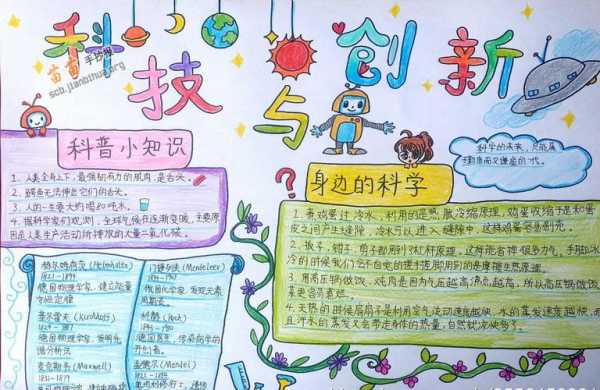 科技与创新
苗苗手抄报
scb.jianbihua.org
科普小知识
1、人类全身上下，最强韧有力的肌肉，是舌头。
2、鳄鱼无法伸出它们的舌头。
3、人的一生要大约喝80吨水。
4、据科学家们观测，全球气候在逐渐变暖，主要原
因是人类生产活动所排放的大量二氧化碳。
(Helmholtz)
1821-1894
德国物理学家，建立能量
守恒定律
基尔霍夫 (Kirchhoff)
1824-1887
德国物理学家，发明光
谱分析法
麦克斯韦 (Maxwell)
1831-1879
门捷列夫 (Mendeleev)
1834-1907
俄国化学家，发现元素
周期表。
科赫 (Koch)
德国医生，传染病学的
开创者。
孟德尔 (Mendel)
科学的未来，只能属
于勤奋而又谦虚的一代。
?
身边的科学
1、煮鸡蛋过冷水，利用的是热胀冷缩原理，鸡蛋收缩于是和蛋
皮之间产生缝隙，冷水可以进入缝隙中，这样鸡蛋容易剥壳。
2、扳子、钳子、剪子都用到了杠杆原理，这样能省掉很多力气，手脚冰
冷的时候我们会不自觉的搓手搓脚用到的是摩擦生热原理。
3、用高压锅做饭，炖肉是因为气压越高沸点越高，所以高压锅做饭
菜更容易煮熟。
4、天热的时候扇扇子是利用空气流动速度越快，水的蒸发速度越快，而
且汗水的蒸发又会带走身体的热量，自然就凉快多了。